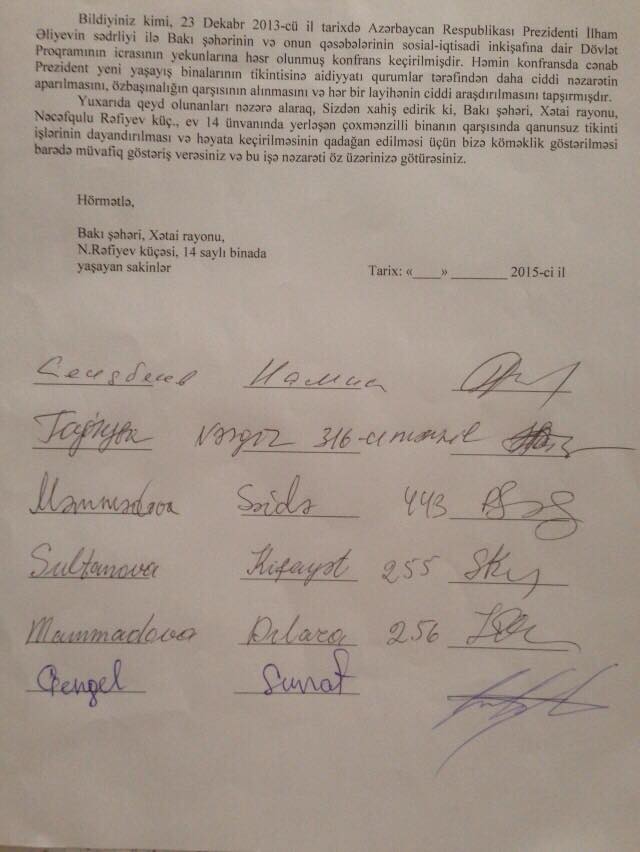 Bildiyiniz kimi, 23 Dekabr 2013-cü il tarixdə Azərbaycan Respublikası Prezidenti İlham
Əliyevin sədrliyi ilə Bakı şəhərinin və onun qəsəbələrinin sosial-iqtisadi inkişafına dair Dövlət
Proqramının icrasının yekunlarına həsr olunmuş konfrans keçirilmişdir. Həmin konfransda cənab
Prezident yeni yaşayış binalarının tikintisinə aidiyyatı qurumlar tərəfindən daha ciddi nəzarətin
aparılmasını, özbaşınalığın qarşısının alınmasını və hər bir layihənin ciddi araşdırılmasını tapşırmışdır.
Yuxarıda qeyd olunanları nəzərə alaraq, Sizdən xahiş edirik ki, Bakı şəhəri, Xətai rayonu,
Nəcəfqulu Rəfiyev küç., ev 14 ünvanında yerləşən çoxmənzilli binanın qarşısında qanunsuz tikinti
işlərinin dayandırılması və həyata keçirilməsinin qadağan edilməsi üçün bizə köməklik göstərilməsi
barədə müvafiq göstəriş verəsiniz və bu işə nəzarəti öz üzərinizə götürəsiniz.
Hörmətlə,
Bakı şəhəri, Xətai rayonu,
N.Rəfiyev küçəsi, 14 saylı binada
yaşayan sakinlər
Tarix: «____» ________ 2015-ci il
Nərgiz 316-
Məmmədova Səidə 443
Sultanova Kifayət 255
Mammadova Dilarə 256